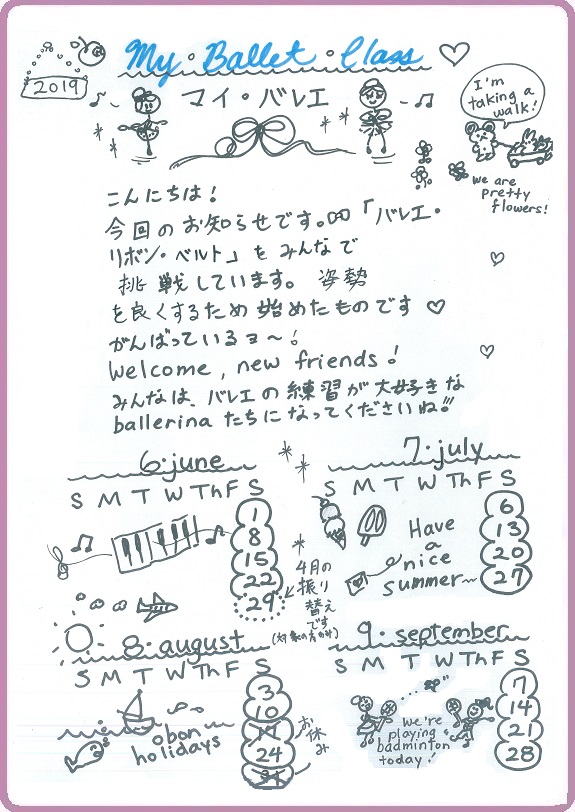 My・Ballet・Class
2019
マイ・バレエ
I'm
taking a
walk!
we are
pretty
flowers!
こんにちは!
今回のお知らせです。「バレエ・
リボン・ベルト」をみんなで
挑戦しています。姿勢
を良くするため始めたものです♡
がんばっているヨ〜!
Welcome, new friends!
みんなは、バレエの練習が大好きな
ballerinaたちになってくださいね!!!
6・june
S M T W Th F S
1
8
15
22
29
4月の
振り
替え
です
(対象の方のみ)
7・july
S M T W Th F S
6
13
20
27
Have
a
nice
summer〜
8・august
S M T W Th F S
3
10
17
24
31
お休み
obon
holidays
9・september
S M T W Th F S
7
14
21
28
we're
playing
badminton
today!